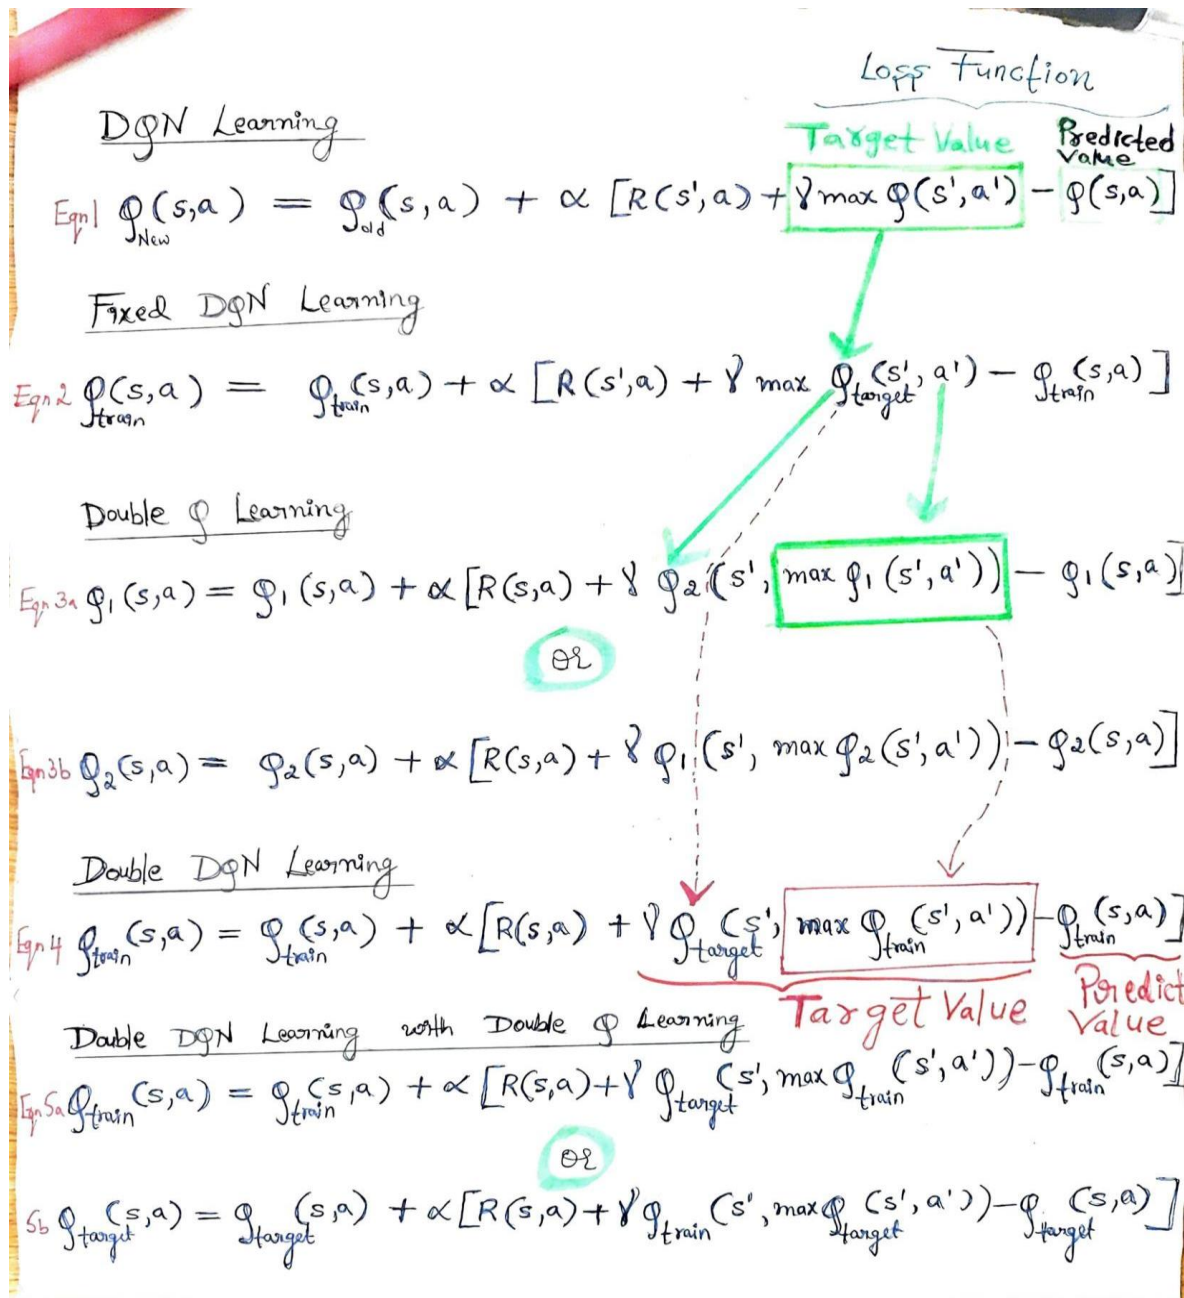 Loss Function
DQN Learning
Target Value
Predicted Value
Eqn1 Q_New(s,a) = Q_old(s,a) + α [R(s',a) + γ max Q(s',a') − Q(s,a)]
Fixed DQN Learning
Eqn2 Q_train(s,a) = Q_train(s,a) + α [R(s',a) + γ max Q_target(s',a') − Q_train(s,a)]
Double Q Learning
Eqn 3a Q1(s,a) = Q1(s,a) + α [R(s,a) + γ Q2(s', max Q1(s',a')) − Q1(s,a)]
or
Eqn3b Q2(s,a) = Q2(s,a) + α [R(s,a) + γ Q1(s', max Q2(s',a')) − Q2(s,a)]
Double DQN Learning
Eqn4 Q_train(s,a) = Q_train(s,a) + α [R(s,a) + γ Q_target(s', max Q_train(s',a')) − Q_train(s,a)]
Target Value
Predict Value
Double DQN Learning with Double Q Learning
Eqn5a Q_train(s,a) = Q_train(s,a) + α [R(s,a) + γ Q_target(s', max Q_train(s',a')) − Q_train(s,a)]
or
5b Q_target(s,a) = Q_target(s,a) + α [R(s,a) + γ Q_train(s', max Q_target(s',a')) − Q_target(s,a)]